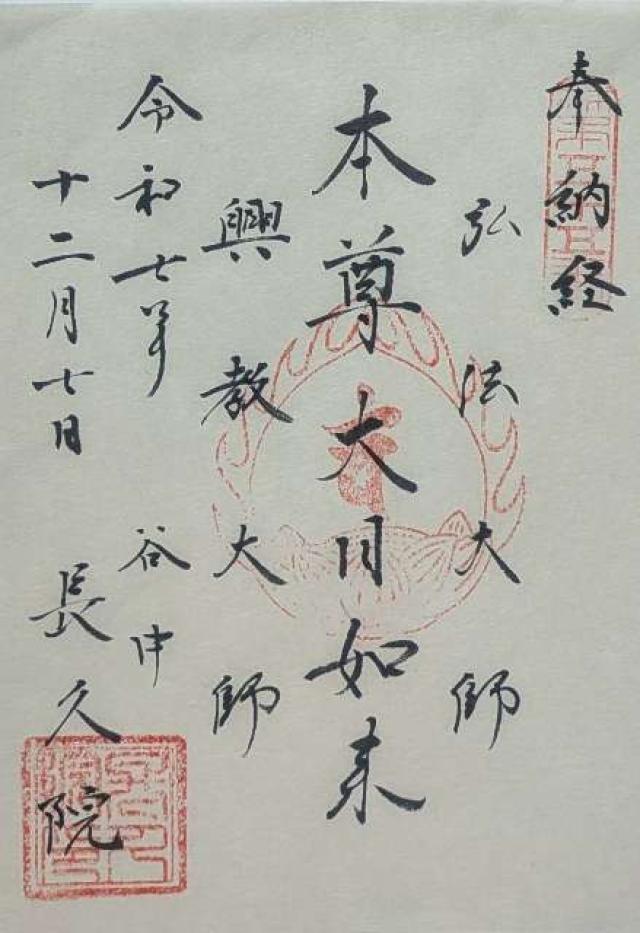 奉納経
弘法大師
本尊大日如来
興教大師
令和七年
十二月七日
谷中
長久院